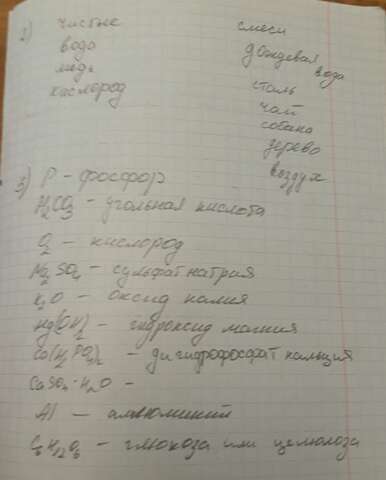 1) чистые
вода
медь
кислород
смеси
дождевая
вода
сталь
чай
собака
дерево
воздух
3) P - фосфор
H2CO3 - угольная кислота
O2 - кислород
Na2SO4 - сульфат натрия
K2O - оксид калия
Mg(OH)2 - гидроксид магния
Ca(H2PO4)2 - дигидрофосфат кальция
CaSO4·H2O -
Al - алюминий
C6H12O6 - глюкоза или целюлоза